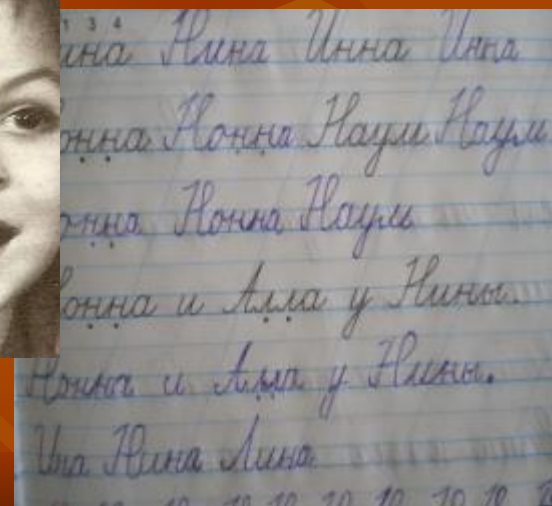 1 3 4
ина Нина Инна Инна
онна Нонна Наум Наум
онна Нонна Наум
онна и Алла у Нины.
Нонна и Алла у Нины.
Ина Нина Лина
10 10 10 10 10 10 10